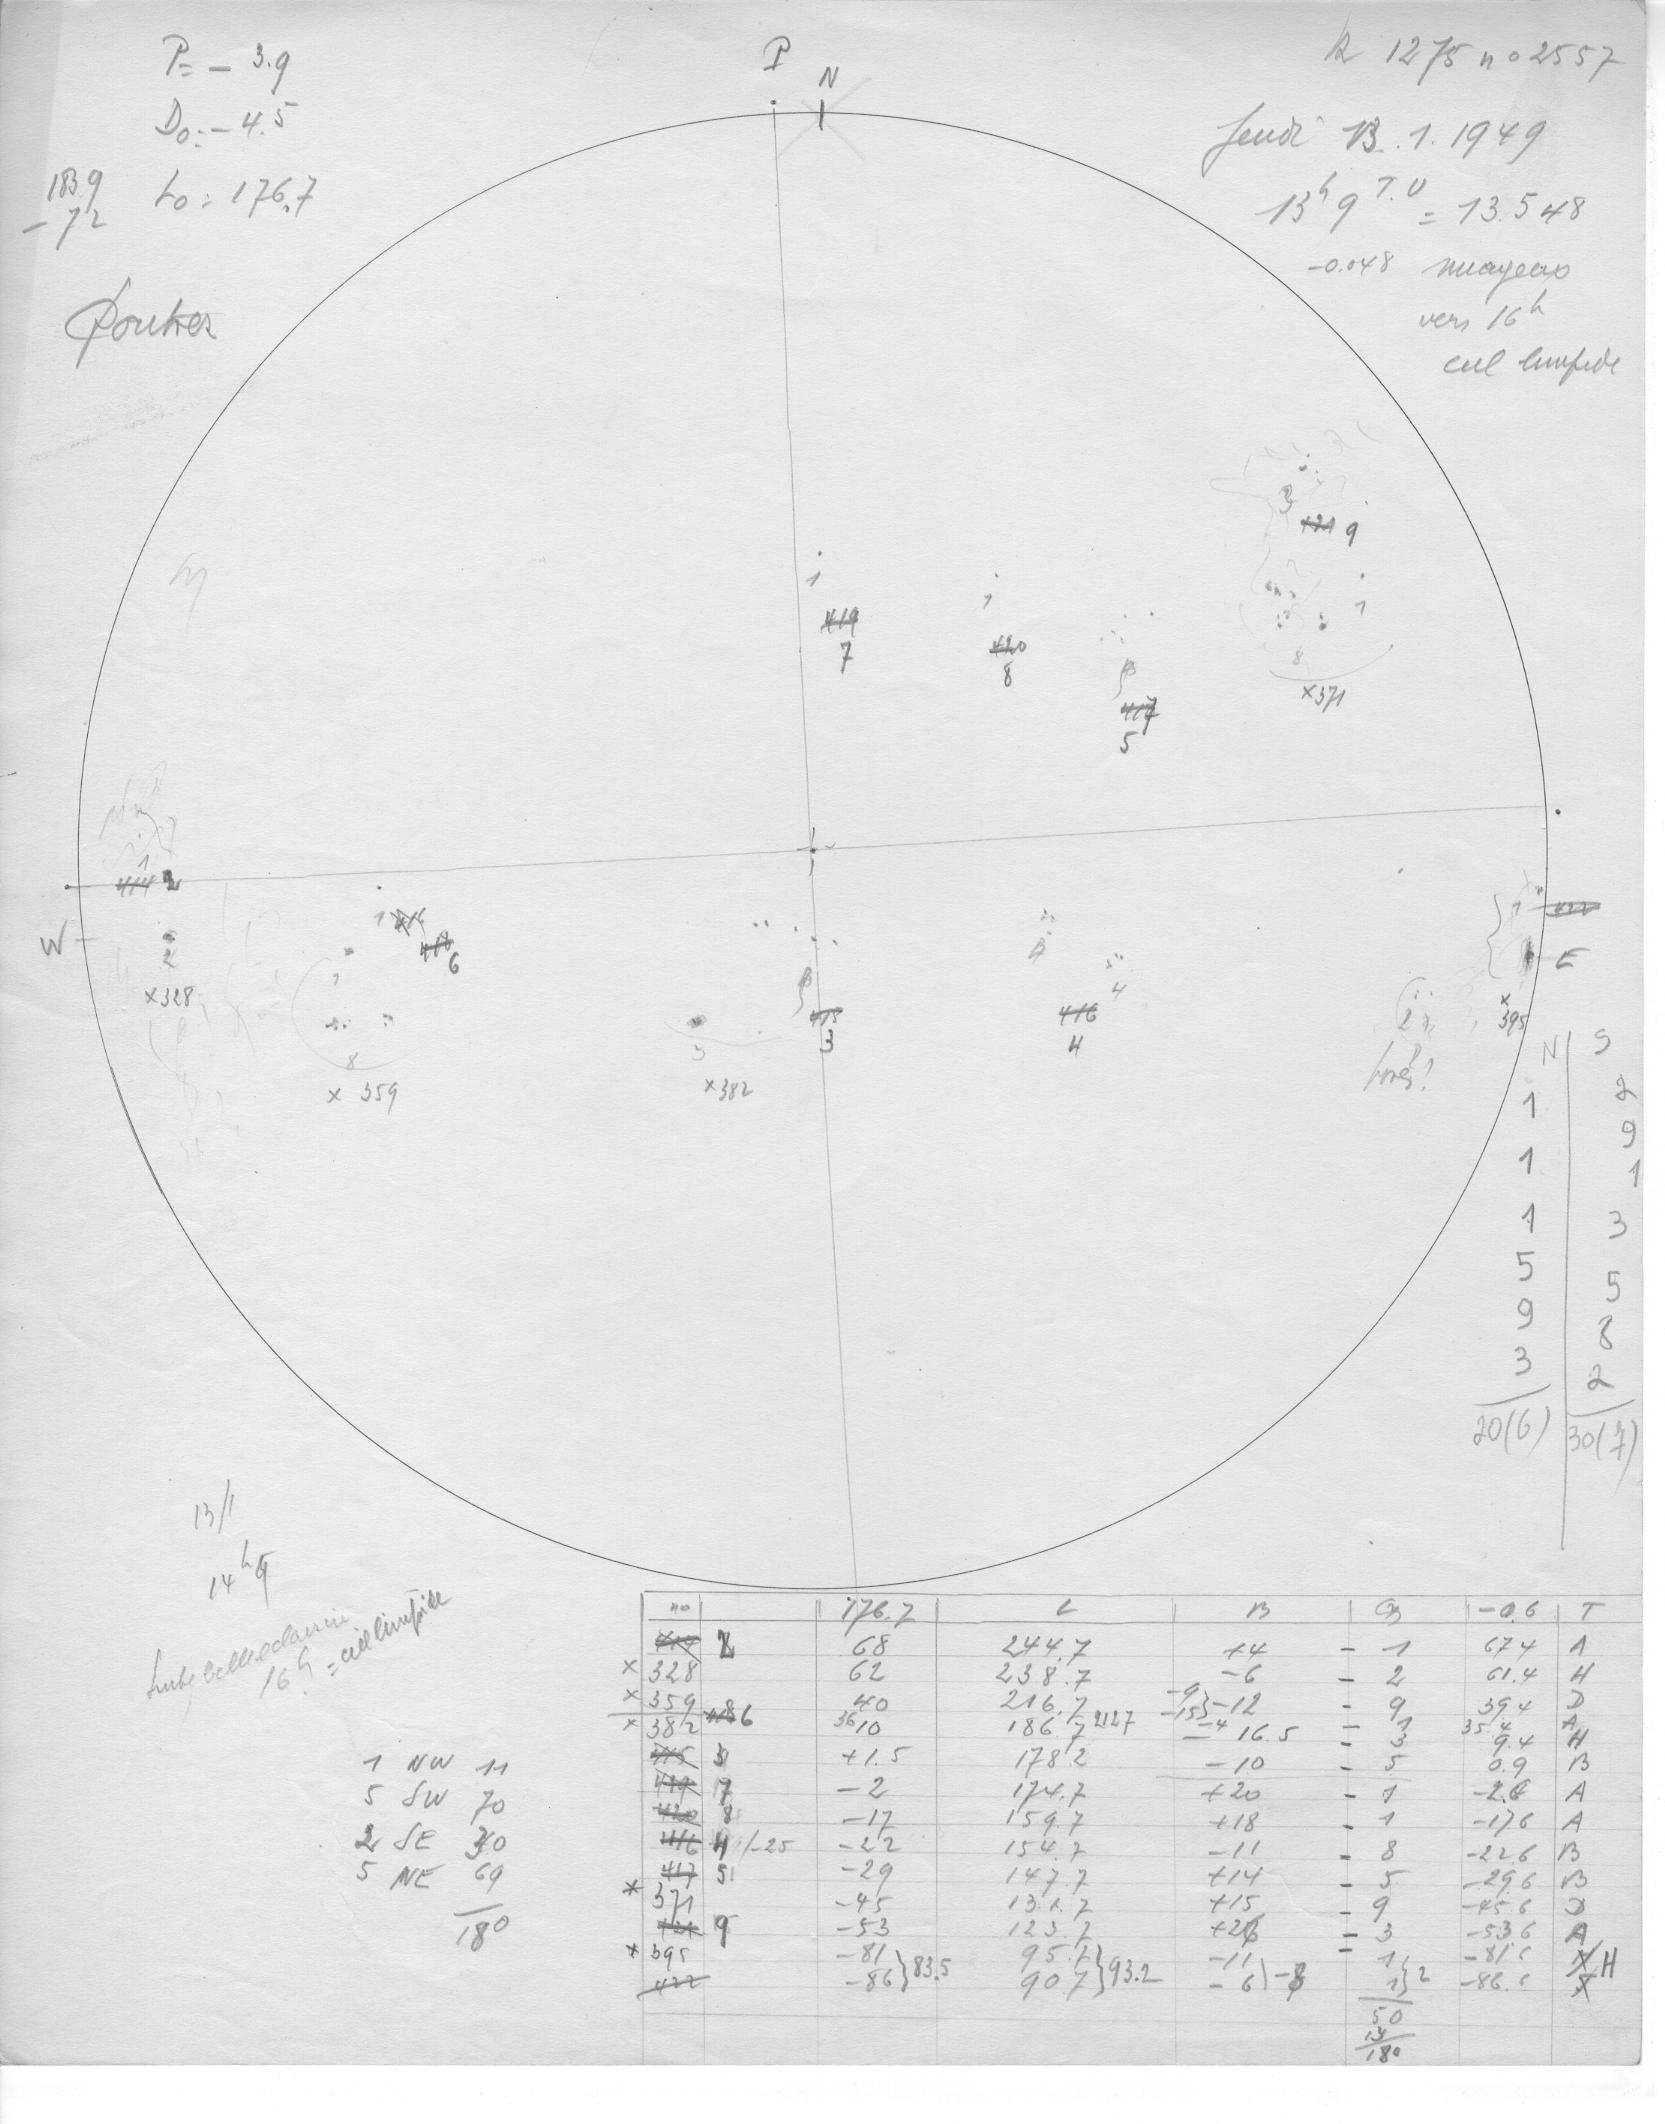 P = - 3.9
D₀ = - 4.5
183.9
- 72
L₀ = 176.7
P
N
R 1275 no 2557
Jeudi 13.1.1949
13h 9 T.U = 13.548
-0.048 nuageux
vers 16h
ciel limpide
3
9
1
1
419
7
1
420
8
8
×371
417
5
1
414
2
W
2
×328
1
418
6
1
8
× 359
3
×382
415
3
4
416
4
1
422
E
×
395
2
N S
1 2
9
1 1
1 3
5 5
9 8
3 2
20(6) 30(7)
13/1
14h
16h = ciel limpide
1 NW 11
5 SW 70
2 SE 30
5 NE 69
180
no 176.7 L B -0.6 T
68 244.7 +4 - 1 67.4 A
× 328 62 238.7 -6 - 2 61.4 H
× 359 40 216.7 -9 -15 } -12 - 9 39.4 D
6 36 212.7 -4 - 1 35.4 A
× 382 10 186.7 -16.5 - 3 9.4 H
415 3 +1.5 178.2 -10 - 5 0.9 B
419 7 -2 174.7 +20 - 1 -2.6 A
420 8 -17 159.7 +18 - 1 -17.6 A
416 4 /-25 -22 154.7 -11 - 8 -22.6 B
417 5 -29 147.7 +14 - 5 -29.6 B
× 371 -45 131.7 +15 - 9 -45.6 D
9 -53 123.7 - 3 -53.6 A
× 395 -81 } 83.5 95.7 } 93.2 -11 - 1 } 2 -81.6 H
422 -86 90.7 -6 1 -86.6
50
13
180